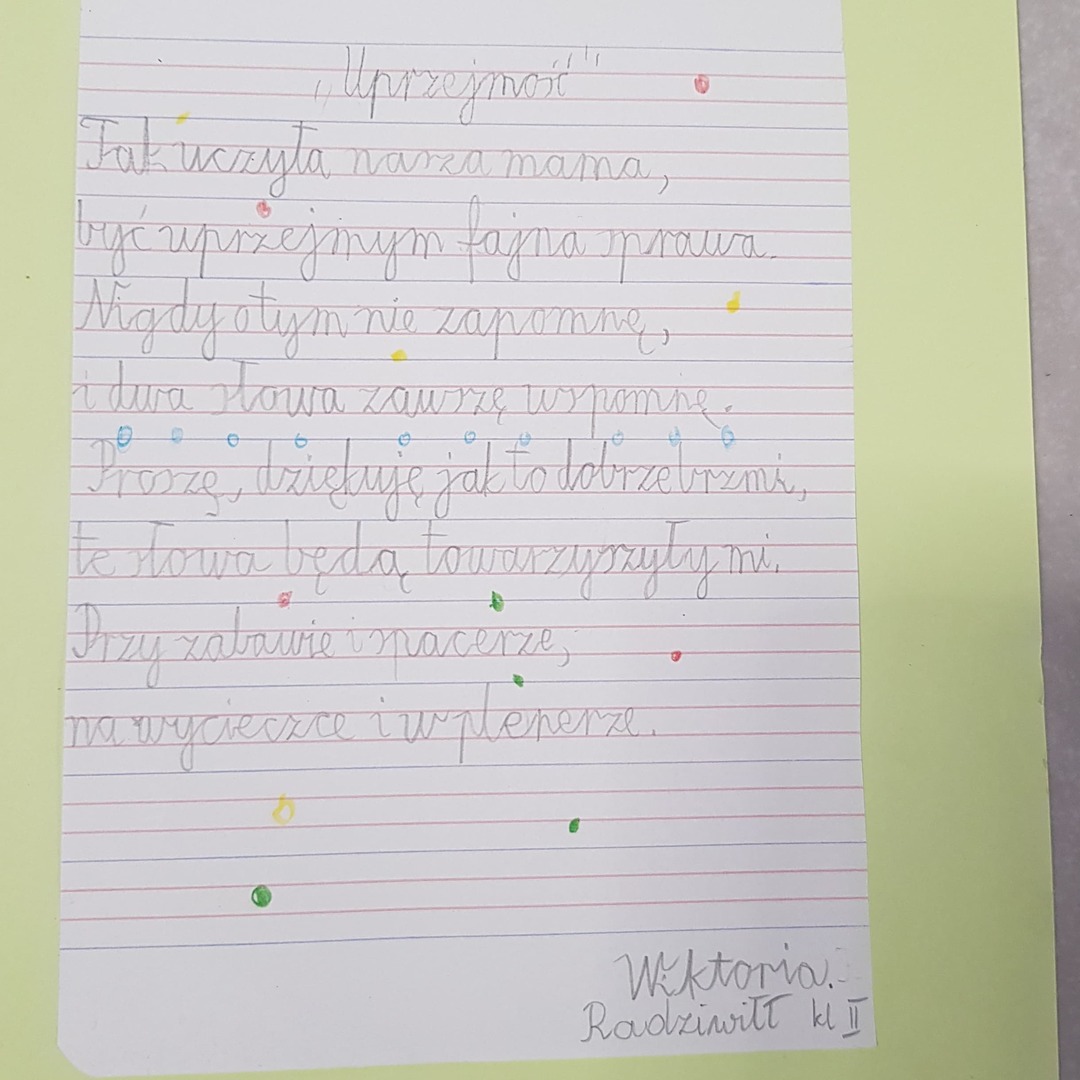 „Uprzejmość"
Tak uczyła nasza mama,
być uprzejmym fajna sprawa.
Nigdy o tym nie zapomnę,
i dwa słowa zawszę wspomnę.
Proszę, dziękuję jak to dobrze brzmi,
te słowa będą towarzyszyły mi.
Przy zabawie i spacerze,
na wycieczce i w plenerze.
Wiktoria.
Radziwiłł kl II